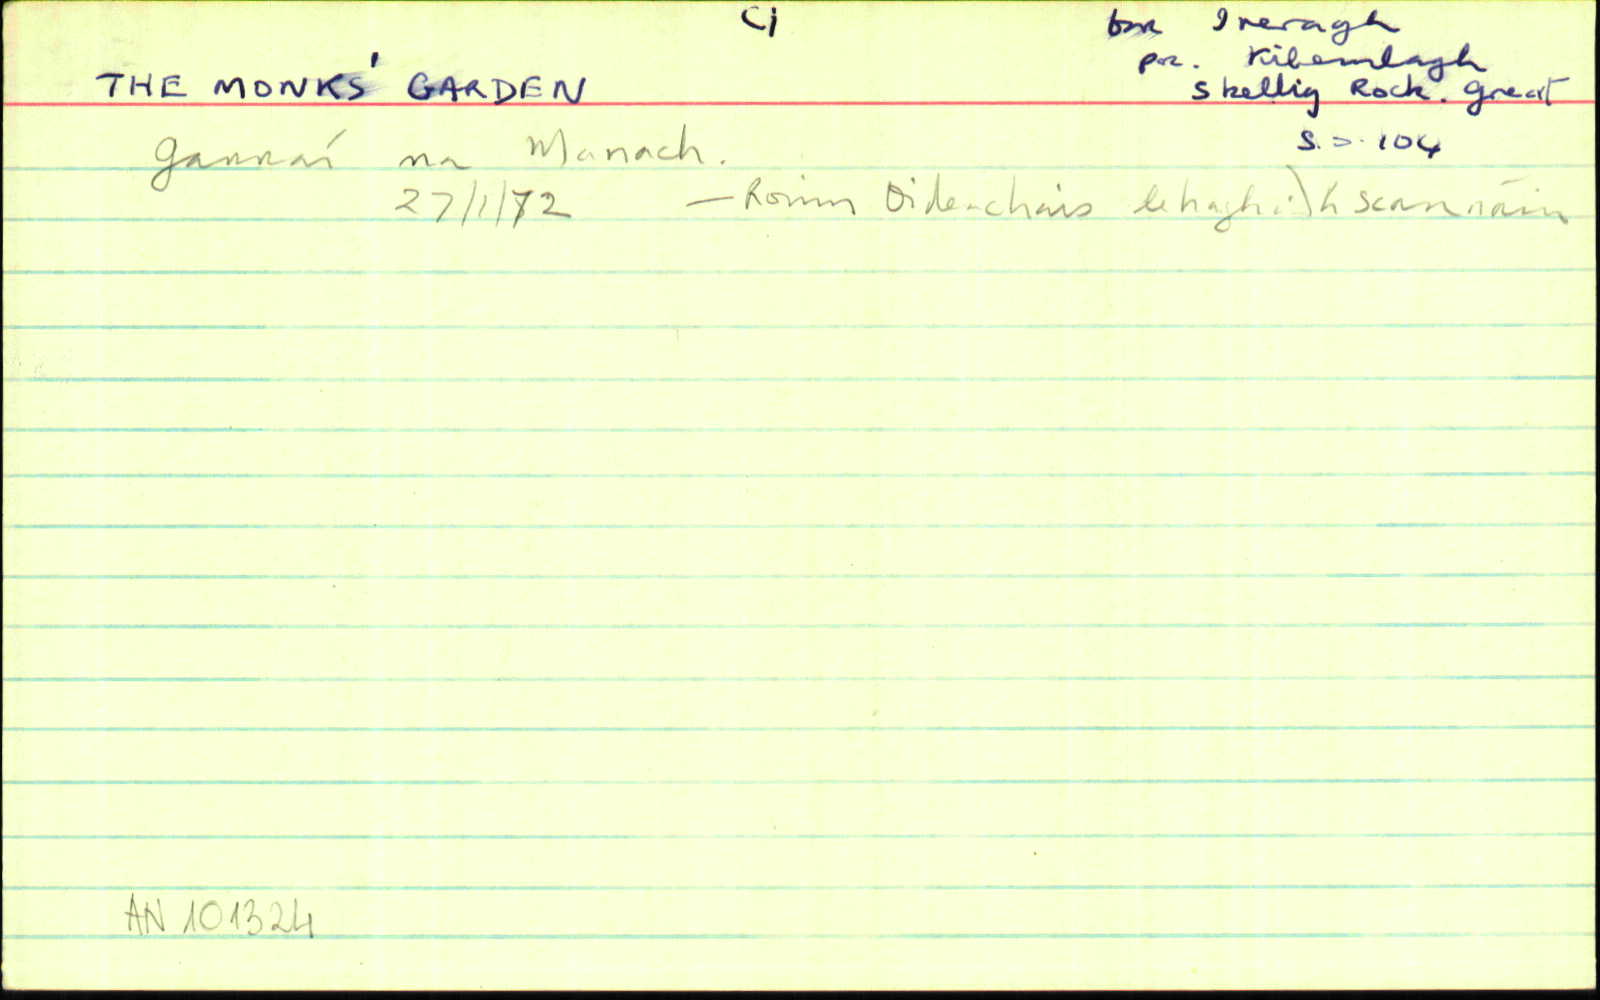 Ci
bar Iveragh
par. Killemlagh
THE MONKS' GARDEN
Skellig Rock. Great
S.D. 104
Garraí na Manach.
27/1/72 — Roinn Oideachais lehaghaidh scannáin
AN 101324